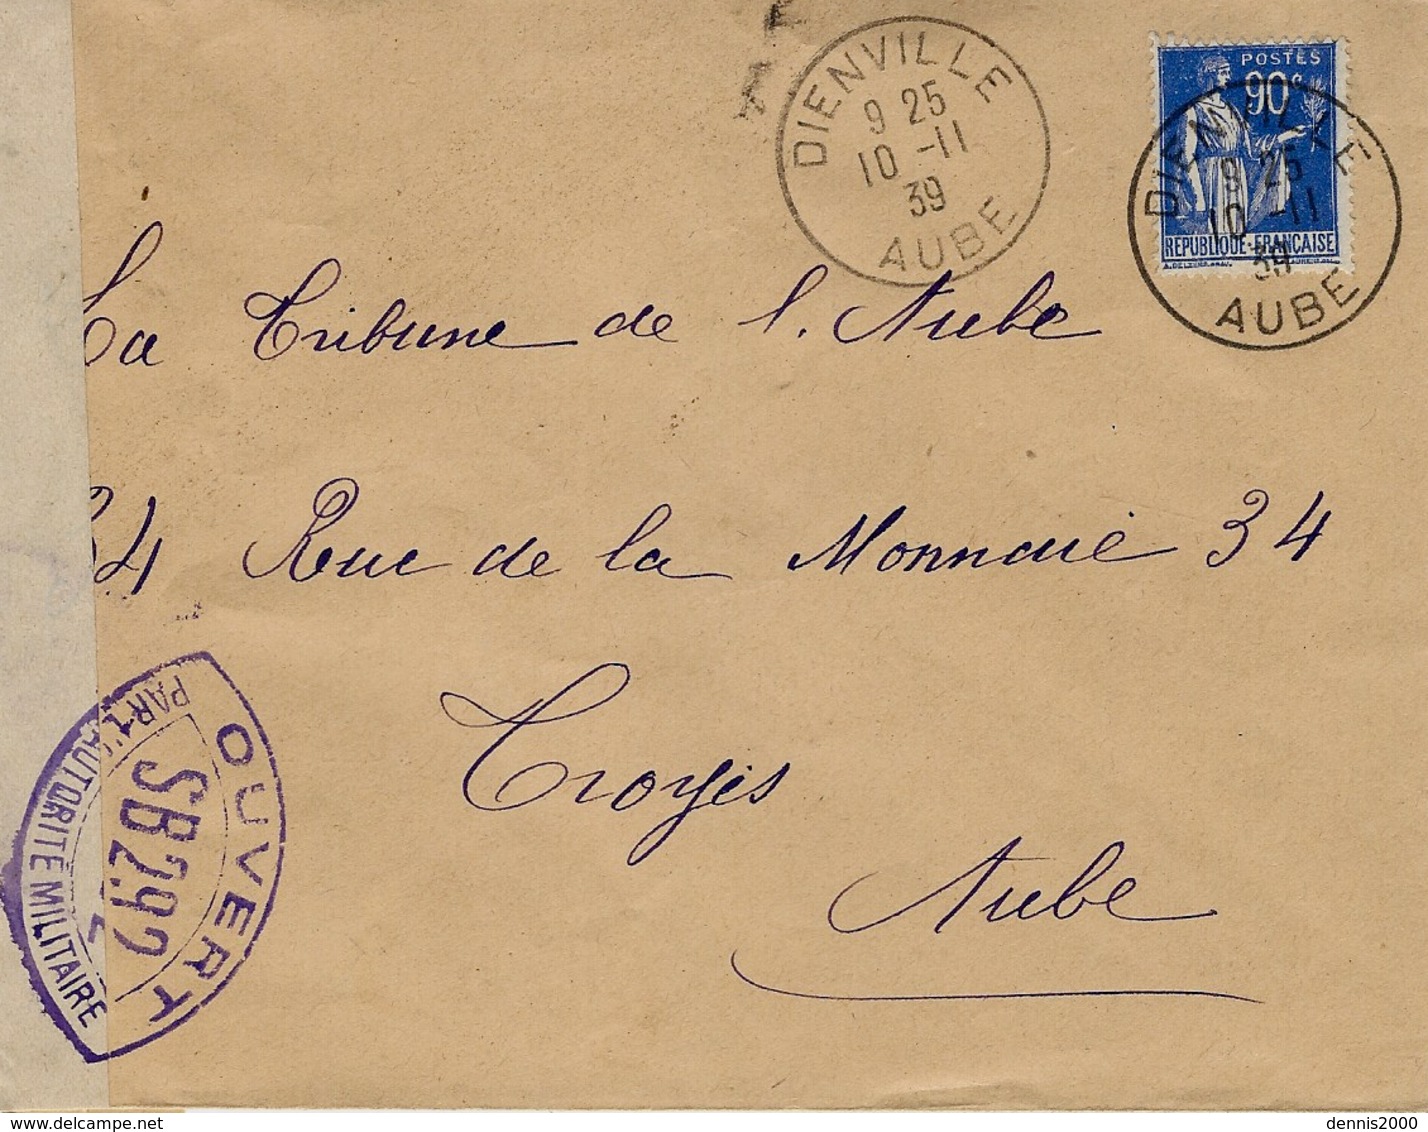 DIENVILLE
9 25
10 -11
39
AUBE
POSTES
90c
RÉPUBLIQUE-FRANÇAISE
DIENVILLE
9 25
10 -11
39
AUBE
La Tribune de l'Aube
34 Rue de la Monnaie 34
Troyes
Aube
OUVERT
PAR L'AUTORITÉ MILITAIRE
SB292
delcampe.net
dennis2000